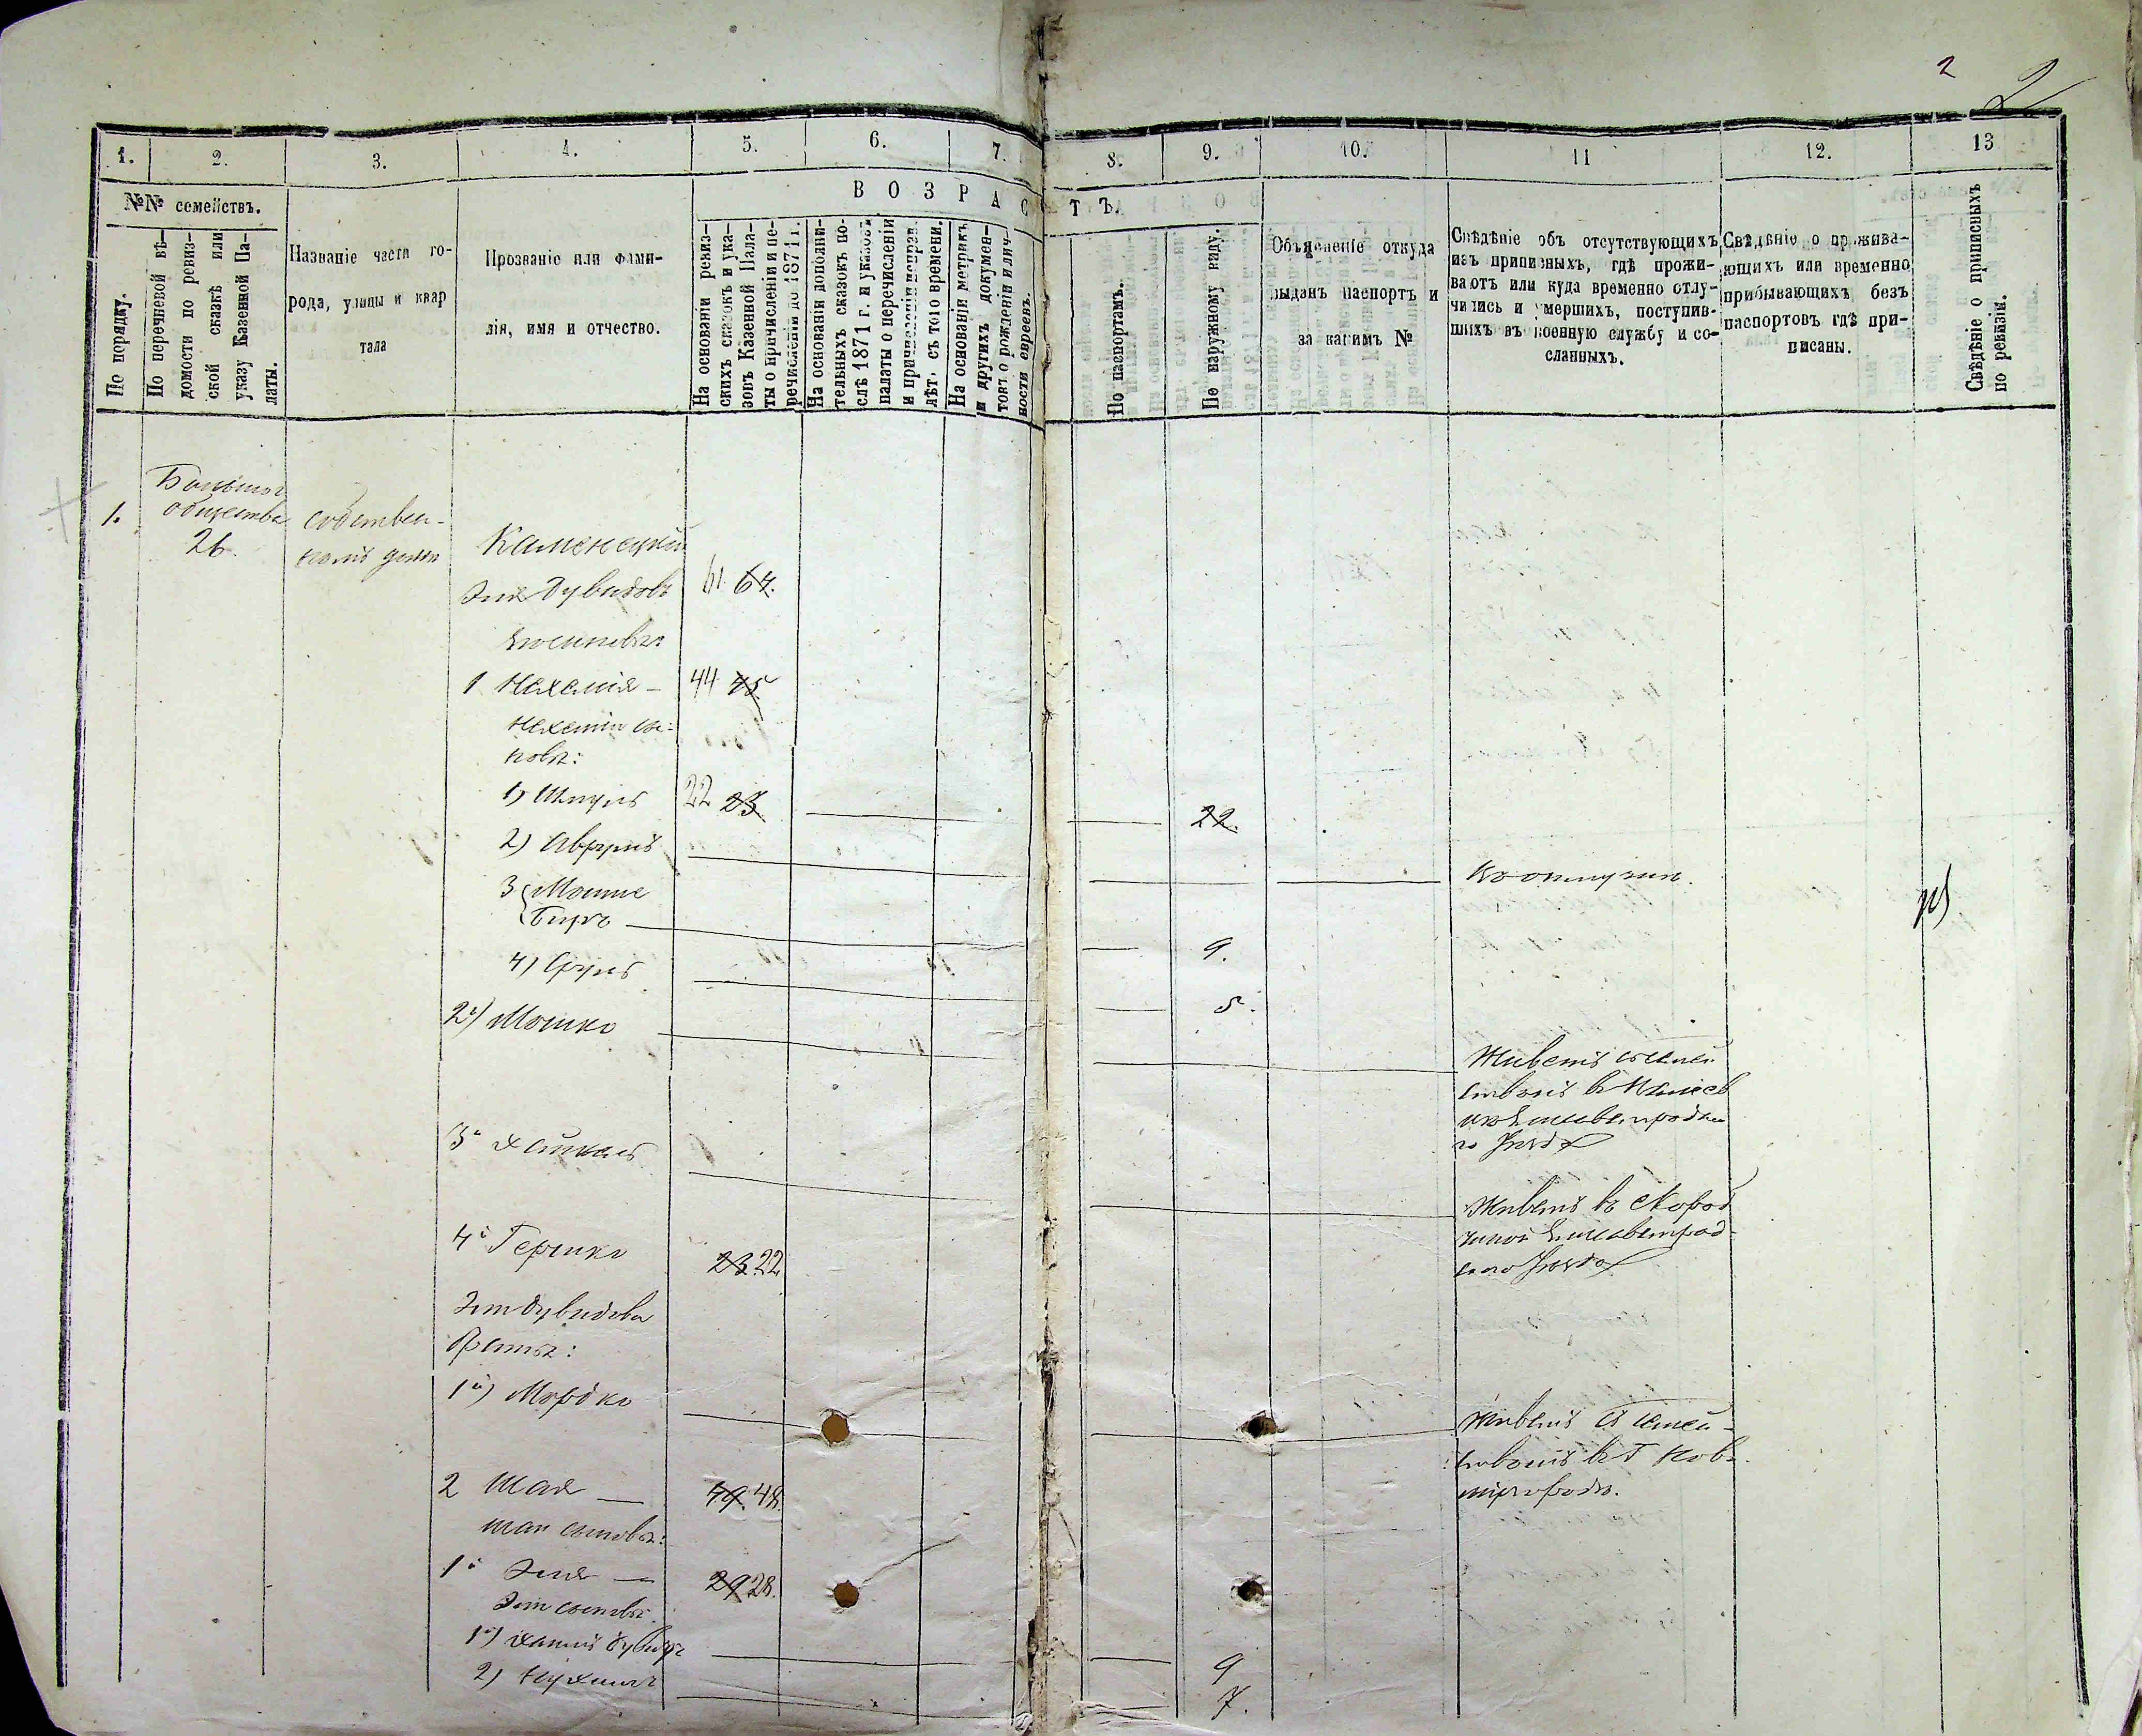 2 2
1. 2. 3. 4. 5. 6. 7. 8. 9. 10. 11 12. 13
№№ семействъ.
По порядку.
По перечневой вѣ-
домости по ревиз-
ской сказкѣ или
указу Казенной Па-
латы.
Названіе части го-
рода, улицы и квар
тала
Прозваніе или фами-
лія, имя и отчество.
ВОЗРАСТЪ.
На основаніи ревиз-
скихъ сказокъ и ука-
зовъ Казенной Пала-
ты о причисленіи и пе-
речисленіи до 1871 г.
На основаніи дополни-
тельныхъ сказокъ по-
слѣ 1871 г. и указовъ
палаты о перечисленіи
и причисленіи неправ.
лѣт, съ того времени.
На основаніи метрикъ
и другихъ докумен-
товъ о рожденіи и лич-
ности евреевъ.
По паспортамъ.
По наружному виду.
Объясненіе откуда
выданъ паспортъ и
за какимъ №
Свѣдѣніе объ отсутствующихъ
изъ приписныхъ, гдѣ прожи-
ваютъ или куда временно отлу-
чились и умершихъ, поступив-
шихъ въ военную службу и со-
сланныхъ.
Свѣдѣніе о прожива-
ющихъ или временно
прибывающихъ безъ
паспортовъ гдѣ при-
писаны.
Свѣдѣніе о приписныхъ
по ревизіи.
1.
общества
26.
собствен-
номъ домѣ
Каменецкій
Эля Дувидовъ 61 64.
1 Нехемія — 44 45
Нехеміи сы-
новья:
1) Шмуль 22 23 22.
2) Аврумъ
3 Мошке
Беръ 9.
4) Сруль 5.
2й) Мошко
Живетъ
въ
Елисаветградска
го уѣзда
3й Хаикель
Живетъ въ
Елисаветград-
скаго уѣзда
4й Гершко 23 22
Эли Дувидова
братья:
1й) Мордко
Живетъ съ семей-
ствомъ въ г Ново
миргородѣ.
2 Шая — 49 48
Шаи сыновья:
1й Эля — 29 28.
Эли сыновья
1й) Хаимъ Дувидъ 9
2) Нухимъ 7.